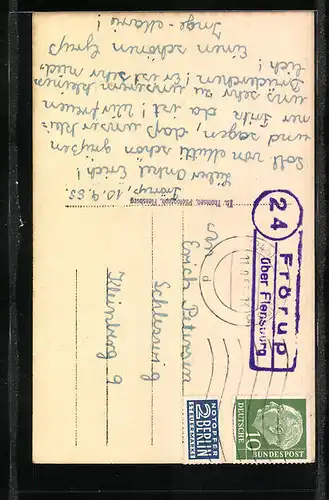 Frörup, 10.9.55.
Lieber Onkel Erich!
Soll von Mutti schön grüßen
und sagen, daß unser klei-
ner Fritz da ist! Wir freuen
uns sehr zu unserem kleinen
Brüderchen! Er ist sehr nied-
lich!
Einen schönen Gruß
Inge-Marie!
Th. Thomsen, Photograph, Flensburg
24
Frörup
über Flensburg
An
Erich Petersen
Schleswig
Kleinberg 9
NOTOPFER
2 BERLIN
STEUERMARKE
10
DEUTSCHE
BUNDESPOST